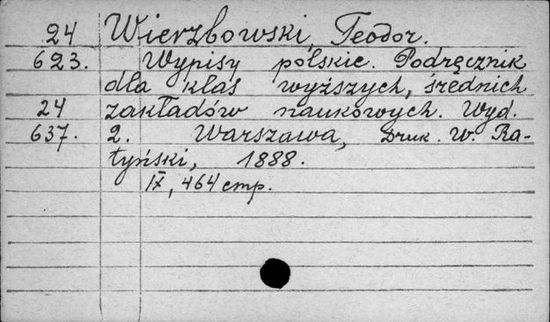 24 Wierzbowski Teodor.
623. Wypisy polskie. Podręcznik
dla klas wyższych, średnich
24 zakładów naukowych. Wyd.
637. 2. Warszawa, Druk. W. Ra-
tyński, 1888.
IX, 464 стр.